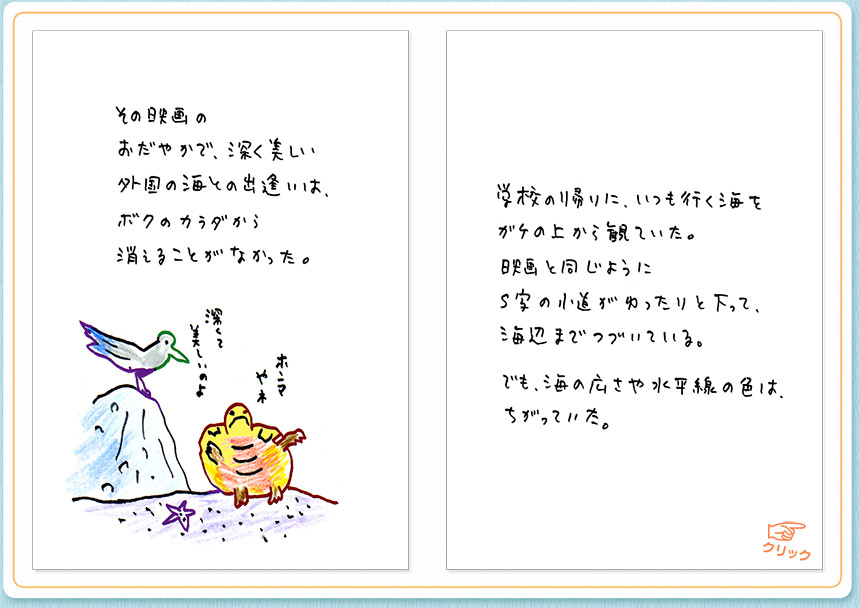 その映画の
おだやかで、深く美しい
外国の海との出逢いは、
ボクのカラダから
消えることがなかった。
深くて
美しいのよ
ホンマ
やネ
学校の帰りに、いつも行く海を
ガケの上から観ていた。
映画と同じように
S字の小道がゆったりと下って、
海辺までつづいている。
でも、海の広さや水平線の色は、
ちがっていた。
クリック